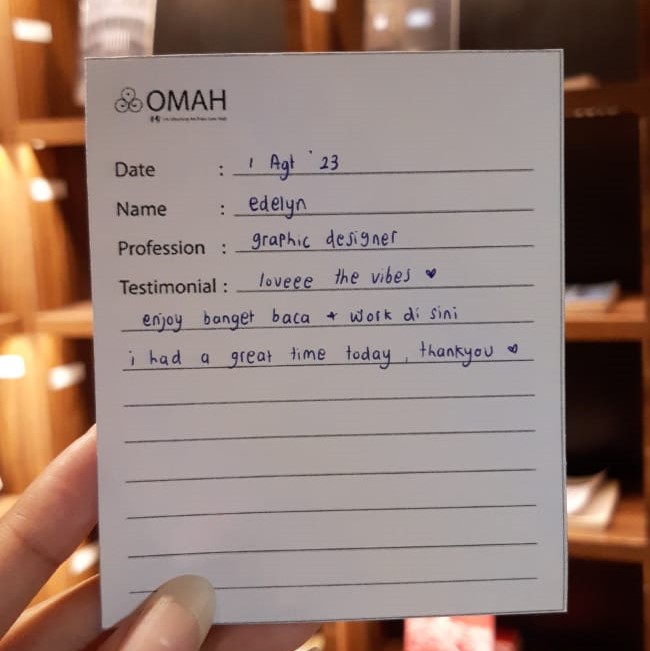 OMAH
Date : 1 Agt '23
Name : edelyn
Profession : graphic designer
Testimonial : loveee the vibes ♥
enjoy banget baca + work di sini
i had a great time today, thankyou ♥